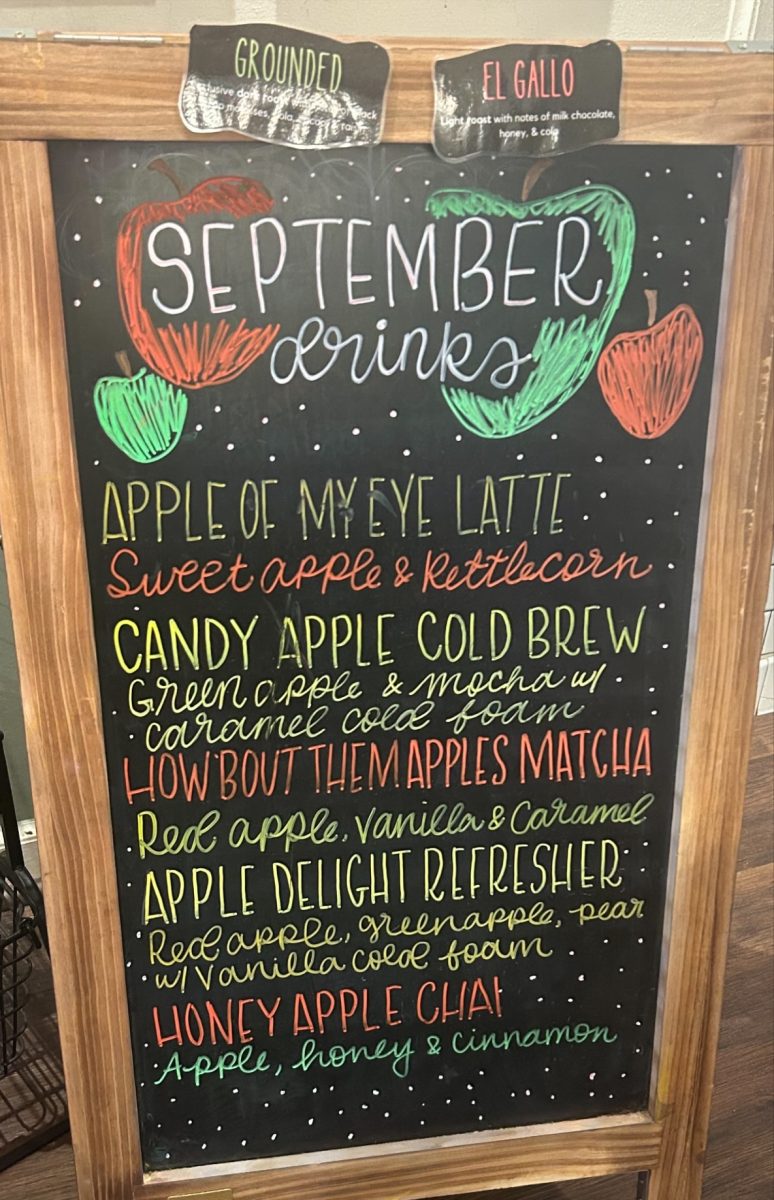 GROUNDED
EL GALLO
Light roast with notes of milk chocolate,
honey, & cola
SEPTEMBER
drinks
APPLE OF MY EYE LATTE
Sweet apple & Kettlecorn
CANDY APPLE COLD BREW
Green apple & mocha w/
caramel cold foam
HOW 'BOUT THEM APPLES MATCHA
Red apple, Vanilla & Caramel
APPLE DELIGHT REFRESHER
Red apple, green apple, pear
w/ Vanilla cold foam
HONEY APPLE CHAI
Apple, honey & cinnamon